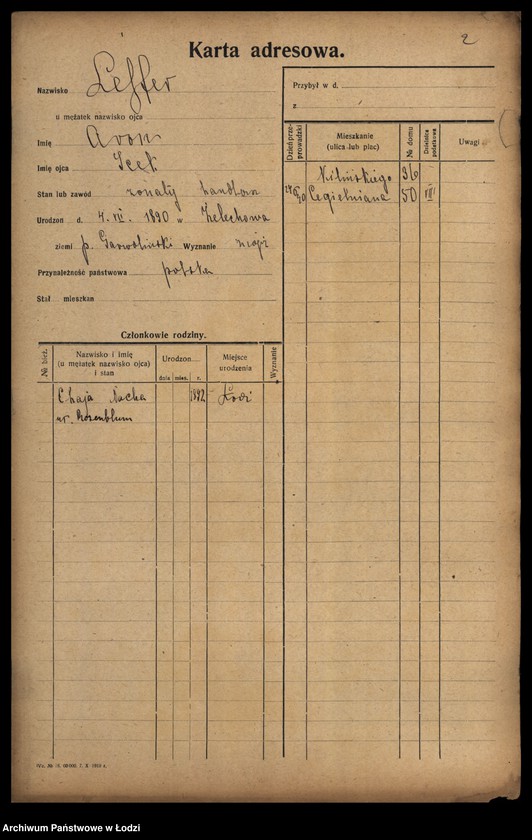 2
Karta adresowa.
Nazwisko Leffer
u mężatek nazwisko ojca
Imię Aron
Imię ojca Icek
Stan lub zawód żonaty handlow
Urodzon d. 4. VII. 1890 w Żelechowa
ziemi p. Garwoliński Wyznanie mojż
Przynależność państwowa polska
Stał mieszkan
Przybył w d.
z
Dzień przeprowadzki
Mieszkanie
(ulica lub plac)
№ domu
Dzielnica podatkowa
Uwagi
Kilińskiego 36
Cegielniana 50 VIII
Członkowie rodziny.
№ bież.
Nazwisko i imię
(u mężatek nazwisko ojca)
i stan
Urodzon
dnia mies. r.
Miejsce
urodzenia
Wyznanie
Chaja Nacha 1892 Łódź
ur. Rozenblum
Archiwum Państwowe w Łodzi